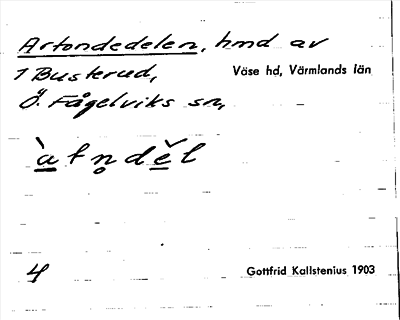 Artondedelen, hmd av
1 Busterud,
Väse hd, Värmlands län
Ö. Fågelviks sn,
4
Gottfrid Kallstenius 1903